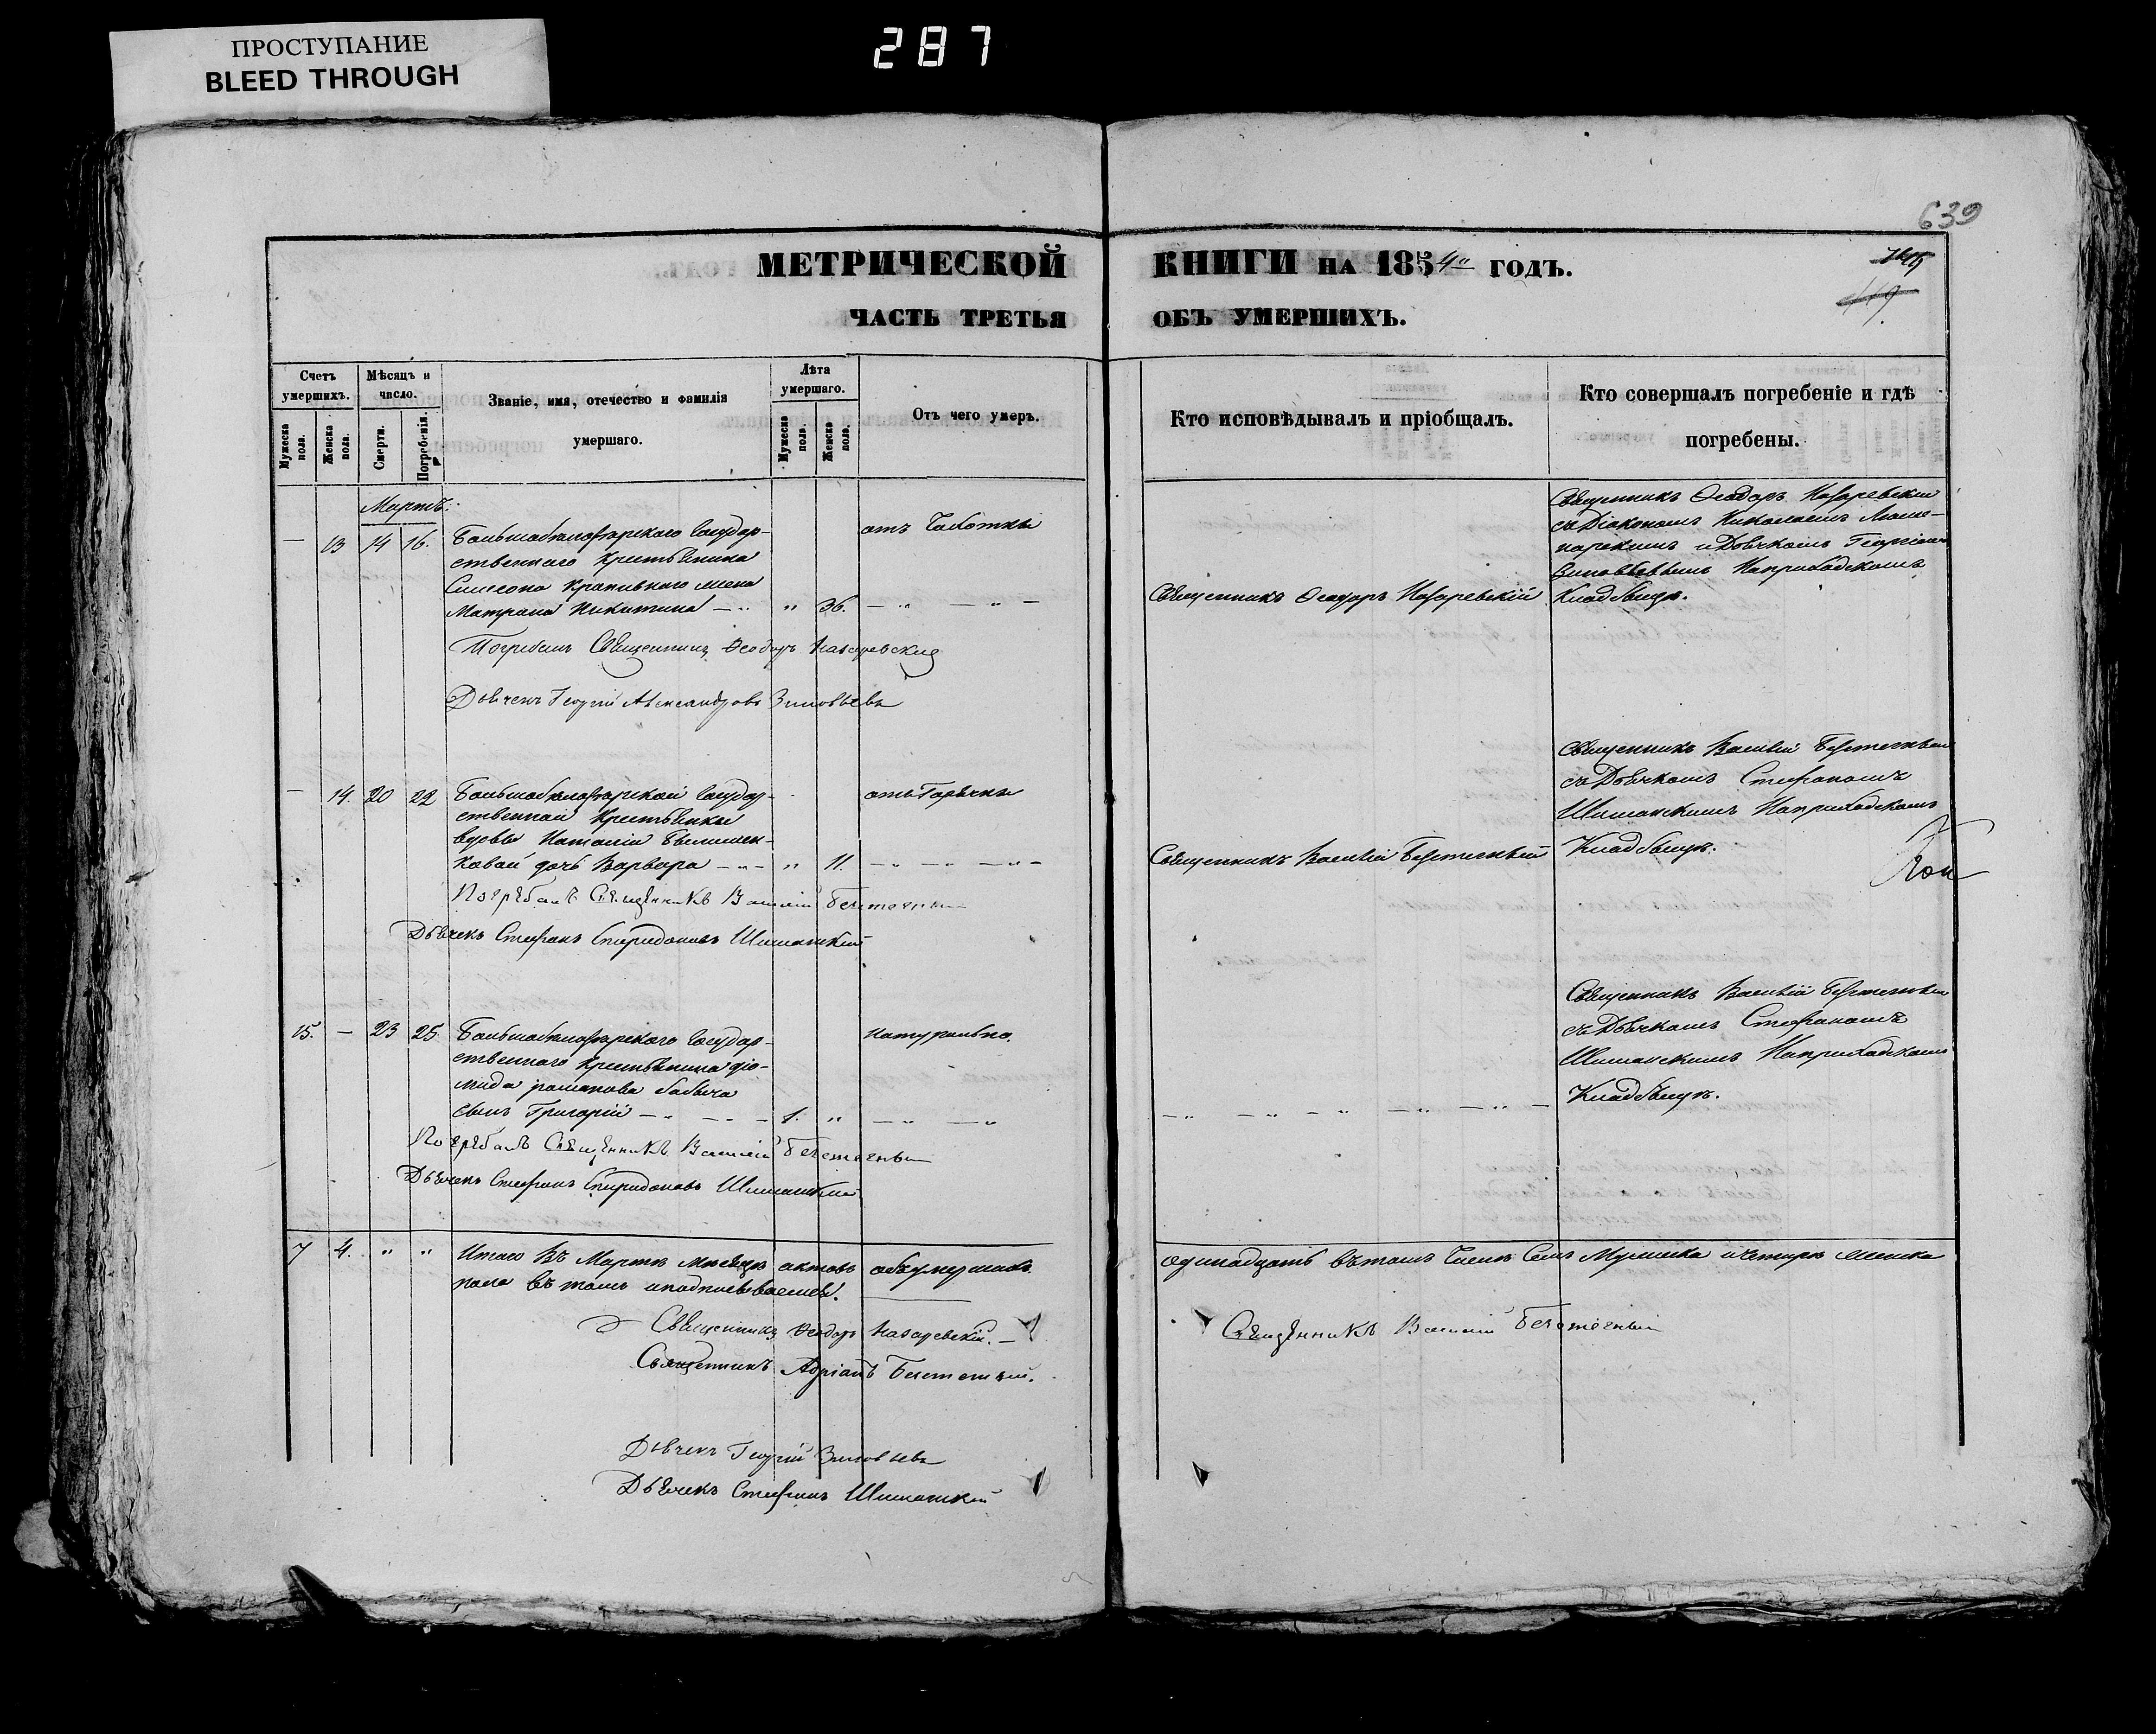 ПРОСТУПАНИЕ
BLEED THROUGH
287
639
МЕТРИЧЕСКОЙ КНИГИ НА 1854го ГОДЪ.
ЧАСТЬ ТРЕТЬЯ ОБЪ УМЕРШИХЪ.
Счетъ умершихъ.
Мужеска пола.
Женска пола.
Мѣсяцъ и число.
Смерти.
Погребенія.
Званіе, имя, отечество и фамилія умершаго.
Лѣта умершаго.
Мужеска пола.
Женска пола.
Отъ чего умеръ.
Кто исповѣдывалъ и пріобщалъ.
Кто совершалъ погребеніе и гдѣ погребены.
Мартъ:
— 13 14 16.
Большабѣлозѣрского Государ-
ственного Крестьянина
Симеона Крапивного жена
Матрона Никитина — „ 36.
отъ Чахотки
Священникъ Ѳеодоръ Назаревскій
Священникъ Ѳеодоръ Назаревскій
съ Діакономъ Николаемъ
и Дьячкомъ Георгіемъ
Зиновьевымъ На приходскомъ
Кладбищѣ.
Погребалъ Священникъ Ѳеодоръ Назаревскій
Дьячекъ Георгій Александровъ Зиновьевъ
— 14. 20 22
Большабѣлозѣрской Государ-
ственной Крестьянки
вдовы Наталіи
дочь Варвара — „ 11.
отъ Горячки
Священникъ Василій Безтечный
Священникъ Василій Безтечный
съ Дьячкомъ Стефаномъ
Шиманскимъ На приходскомъ
Кладбищѣ.
Погребалъ Священникъ Василій
Дьячекъ Стефанъ Спиридоновъ Шиманскій
15. — 23 25
Большабѣлозѣрского Государ-
ственного Крестьянина Діо-
мида Романова Бабича
сынъ Григорій — 1. „
натурально.
Священникъ Василій
съ Дьячкомъ Стефаномъ
Шиманскимъ На приходскомъ
Кладбищѣ.
Погребалъ Священникъ Василій
Дьячекъ Стефанъ Спиридоновъ Шиманскій
7 4. „ „ Итого Въ Мартѣ Мѣсяцѣ актовъ объ умершихъ одинадцать въ томъ числѣ Семь Мужеска и четыре женска
пола въ томъ и подписываемся.
Священникъ Ѳеодоръ Назаревскій.
Священникъ Василій
Священникъ Адріанъ
Дьячекъ Георгій Зиновьевъ
Дьячекъ Стефанъ Шиманскій